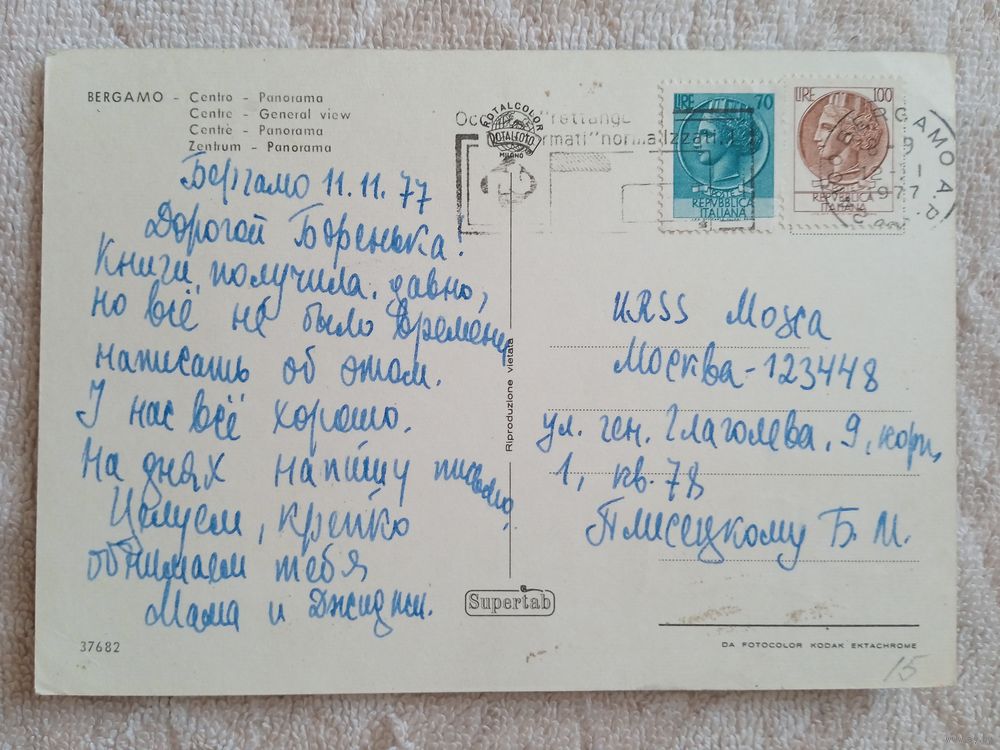 BERGAMO - Centro - Panorama
Centre - General view
Centre - Panorama
Zentrum - Panorama
Бергамо 11.11.77
Дорогой Боренька!
Книги получила давно,
но всё не было времени
написать об этом.
У нас всё хорошо.
На днях напишу письмо.
Целуем, крепко
обнимаем тебя
Мама и Джиджи.
37682
ROTALCOLOR
ROTALFOTO
MILANO
"rettango
rmati" normalizzati
LIRE 70
POSTE
REPVBBLICA
ITALIANA
LIRE 100
REPVBBLICA
ITALIANA
1977
Riproduzione vietata
URSS Mosca
Москва-123448
ул. ген. Глаголева, 9, корп,
1, кв. 78
Плисецкому Б. М.
Supertab
DA FOTOCOLOR KODAK EKTACHROME
15